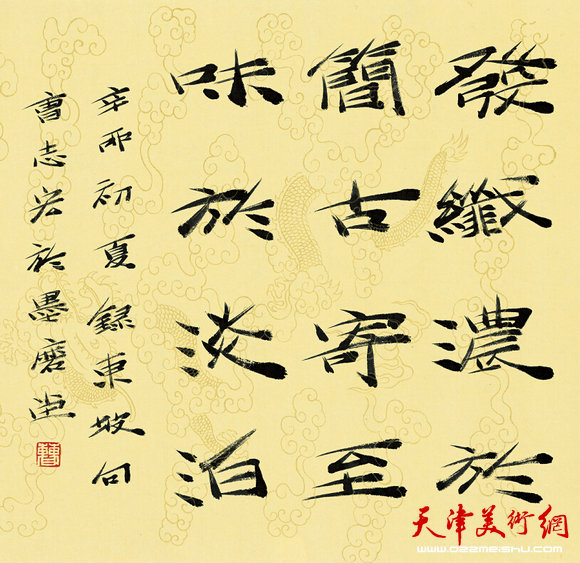 發纖濃於
簡古寄至
味於淡泊
辛卯初夏錄東坡句
曹志宏於墨磨堂
曹
天津美術網
www.022meishu.com